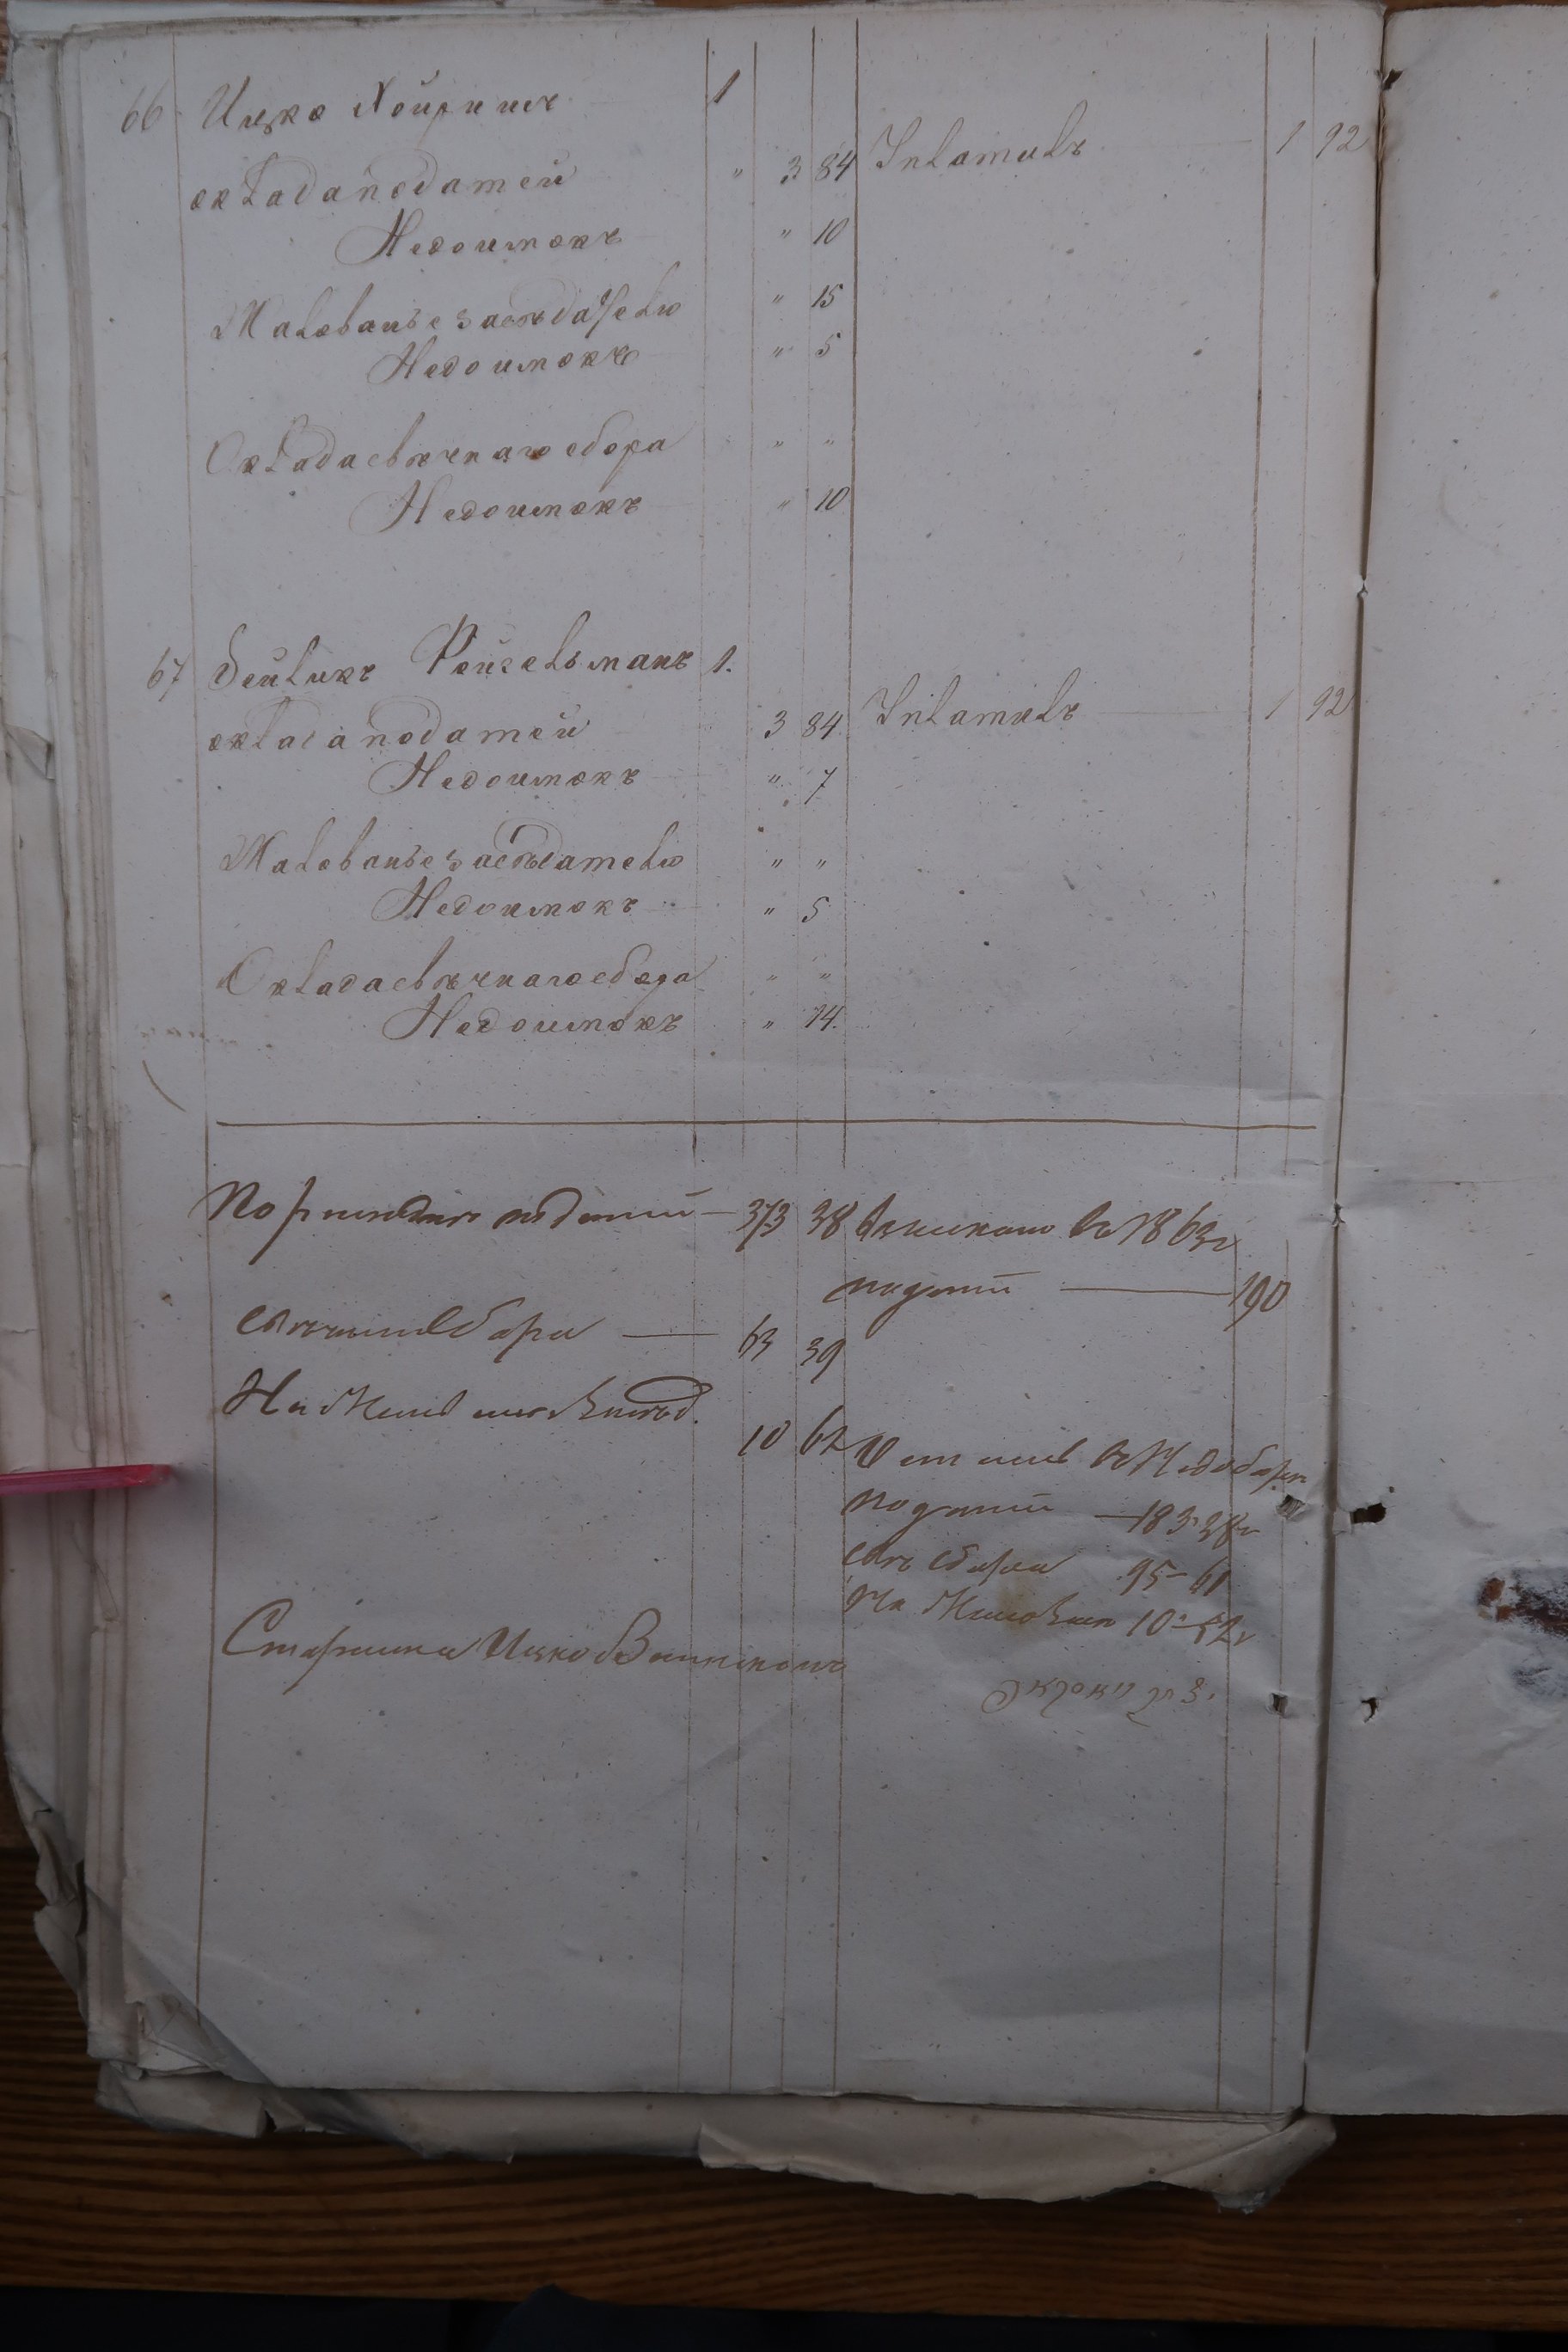 66 Ицко 1
оклада податей " 3 84 Уплатилъ 1 92
Недоимокъ " 10
Жалованье засѣдателю " 15
Недоимокъ " 5
Оклада свѣчнаго сбора " "
Недоимокъ " 10
67 Зейликъ Рейзельманъ 1.
оклада податей 3 84 Уплатилъ 1 92
Недоимокъ " 7
Жалованье засѣдателю " "
Недоимокъ " 5
Оклада свѣчнаго сбора " "
Недоимокъ " 14.
По податей — 373 38 Взыскано въ 1863 г
податей — 190
свѣчнаго сбора — 63 39
На Жалов засѣд. 10 62
въ Недоборѣ
податей — 183 38
свѣч сбора 95 — 61
На Жалованье 10
Старшина Ицко